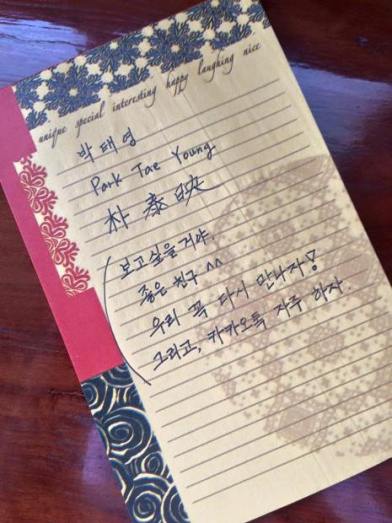 unique special interesting happy laughing nice
박태영
Park Tae Young
朴泰映
보고싶을거야.
좋은 친구 ^^
우리 꼭 다시 만나자!
그리고, 카카오톡 자주 하자